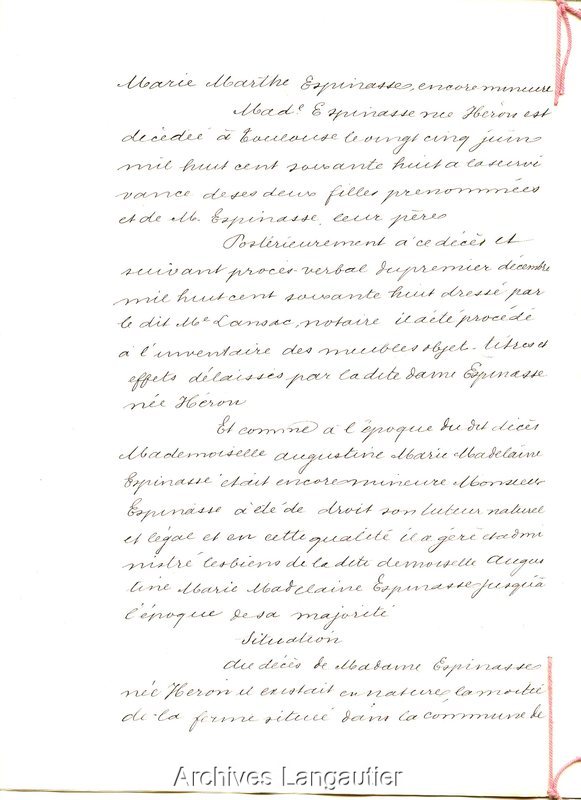 Marie Marthe Espinasse, encore mineure
Made Espinasse née Héron est
décédée à Toulouse le vingt cinq juin
mil huit cent soixante huit a la survi
vance de ses deux filles prénommées
et de M. Espinasse, leur père
Postérieurement à ce décès et
suivant procès-verbal du premier décembre
mil huit cent soixante huit dressé par
le dit Me Lansac, notaire il a été procédé
à l'inventaire des meubles objet. titres et
effets délaissés par la dite dame Espinasse
née Héron
Et comme à l'époque du dit décès
Mademoiselle Augustine Marie Madelaine
Espinasse était encore mineure Monsieur
Espinasse a été de droit son tuteur naturel
et légal et en cette qualité il a géré et admi
nistré les biens de la dite demoiselle Augus
tine Marie Madelaine Espinasse jusqu'à
l'époque de sa majorité
Situation
Au décès de Madame Espinasse
née Héron il existait en nature la moitié
de la ferme situé dans la commune de
Archives Langautier